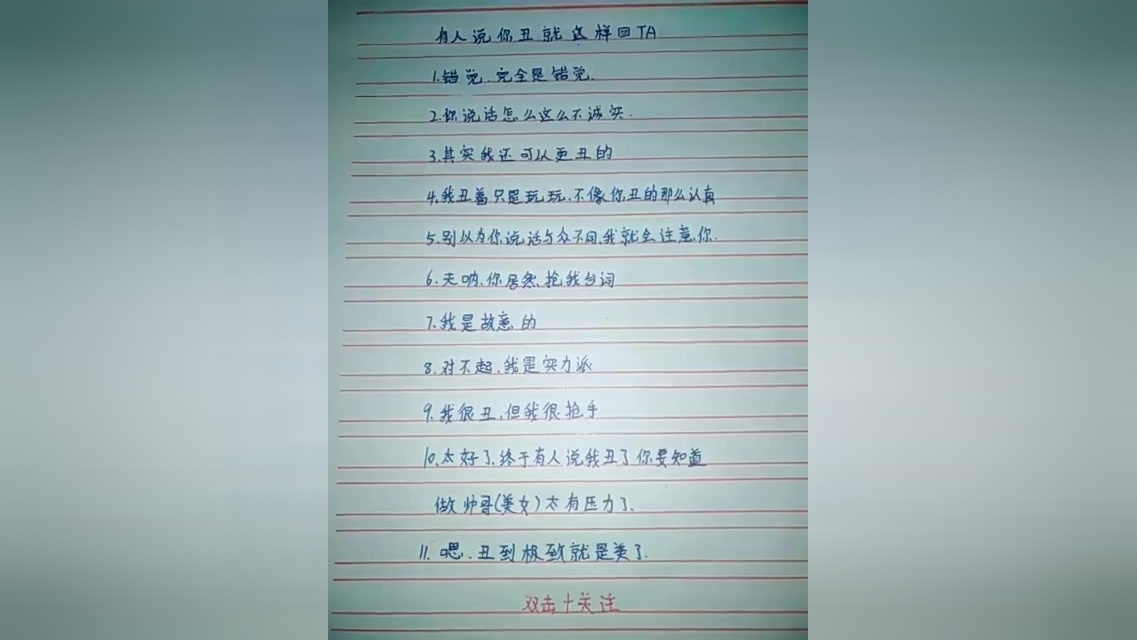 有人说你丑就这样回TA
1.错觉.完全是错觉.
2.你说话怎么这么不诚实.
3.其实我还可以更丑的
4.我丑着只是玩玩.不像你丑的那么认真
5.别以为你说话与众不同.我就会注意你.
6.天呐.你居然抢我台词
7.我是故意的
8.对不起.我是实力派
9.我很丑,但我很抢手
10.太好了.终于有人说我丑了你要知道
做帅哥(美女)太有压力了.
11.嗯.丑到极致就是美了.
双击+关注